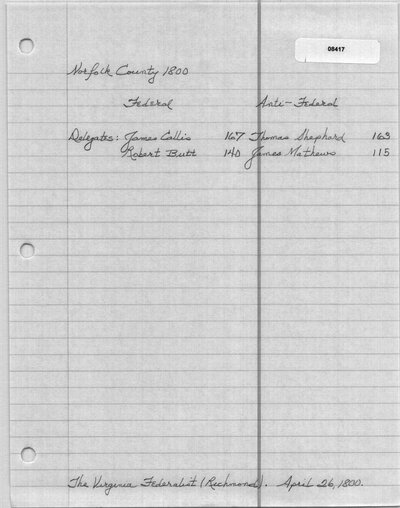 08417
Norfolk County 1800
Federal Anti-Federal
Delegates: James Collis 167 Thomas Shephard 163
Robert Butt 140 James Mathews 115
The Virginia Federalist (Richmond). April 26, 1800.